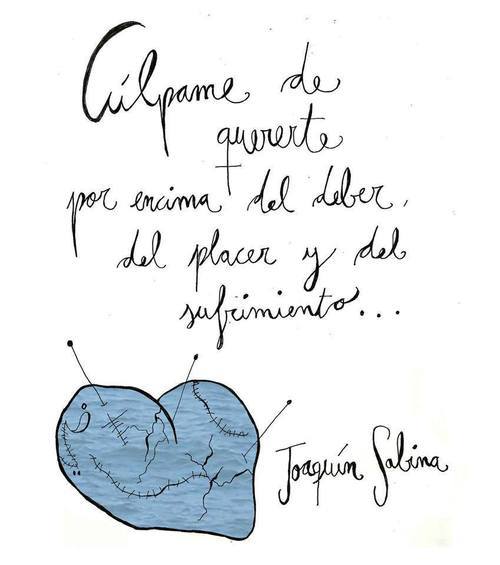 Cúlpame de
quererte
por encima del deber,
del placer y del
sufrimiento...
Joaquín Sabina